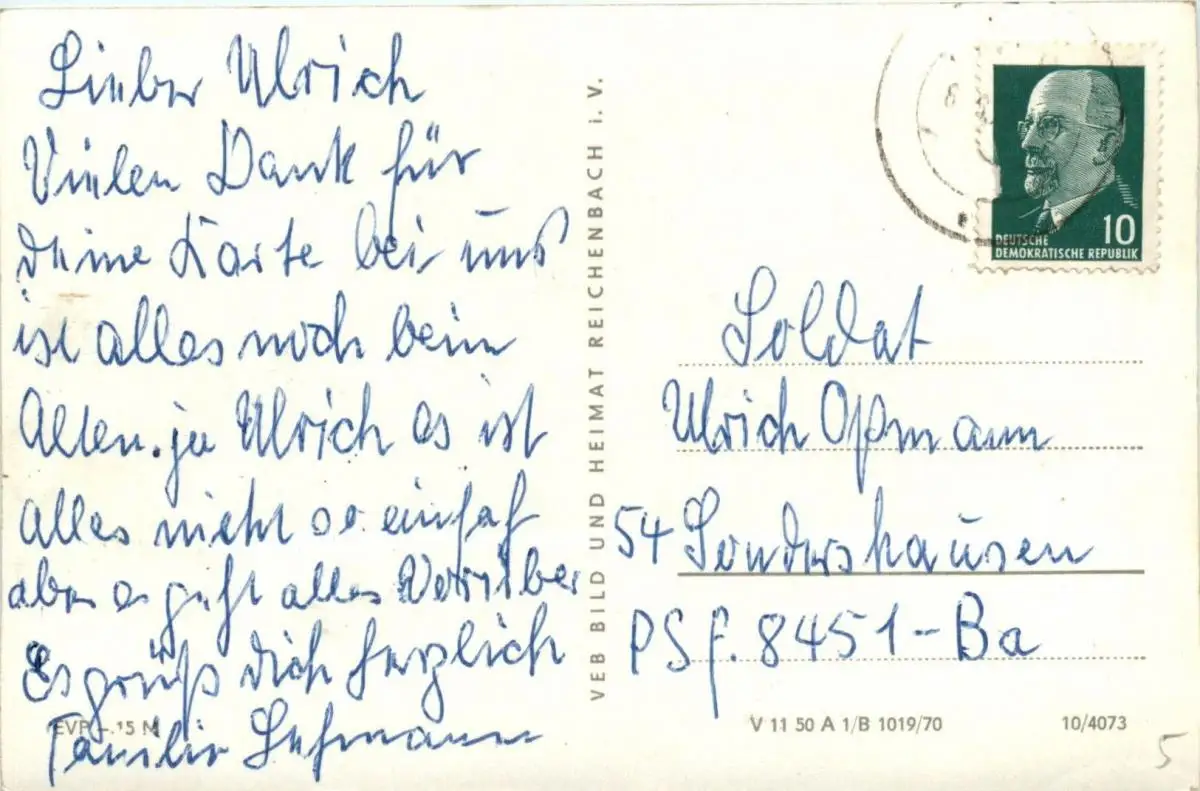 Lieber Ulrich
Vielen Dank für
Deine Karte bei uns
ist alles noch beim
Alten. ja Ulrich es ist
alles nicht so einfach
aber es geht alles Vorüber
Es grüßt dich herzlich
Familie Lehmann
EVP -.15 M
VEB BILD UND HEIMAT REICHENBACH i. V.
DEUTSCHE
DEMOKRATISCHE REPUBLIK
10
Soldat
Ulrich Oßmann
54 Sondershausen
PSF. 8451-Ba
V 11 50 A 1/B 1019/70
10/4073
5